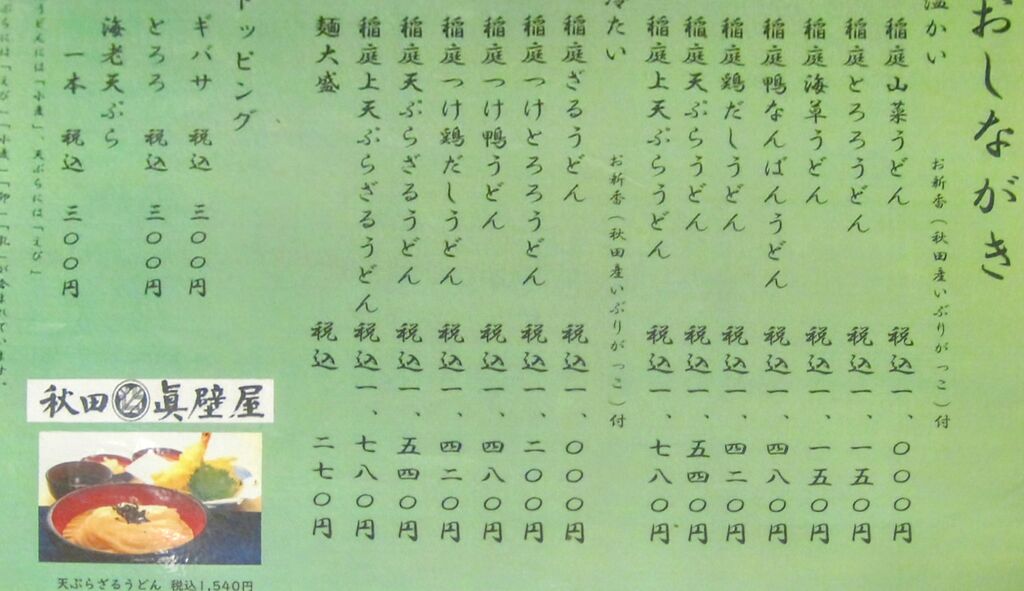 おしながき
温かい お新香(秋田産いぶりがっこ)付
稲庭山菜うどん 税込一、〇〇〇円
稲庭とろろうどん 税込一、一五〇円
稲庭海草うどん 税込一、一五〇円
稲庭鴨なんばんうどん 税込一、四八〇円
稲庭鶏だしうどん 税込一、四二〇円
稲庭天ぷらうどん 税込一、五四〇円
稲庭上天ぷらうどん 税込一、七八〇円
冷たい お新香(秋田産いぶりがっこ)付
稲庭ざるうどん 税込一、〇〇〇円
稲庭つけとろろうどん 税込一、二〇〇円
稲庭つけ鴨うどん 税込一、四八〇円
稲庭つけ鶏だしうどん 税込一、四二〇円
稲庭天ぷらざるうどん 税込一、五四〇円
稲庭上天ぷらざるうどん 税込一、七八〇円
麺大盛 税込 二七〇円
トッピング
ギバサ 税込 三〇〇円
とろろ 税込 三〇〇円
海老天ぷら
一本 税込 三〇〇円
うどんには「小麦」、天ぷらには「えび」
ぷらには「えび」「小麦」「卵」「乳」が含まれています。
秋田 眞壁屋
天ぷらざるうどん 税込1,540円